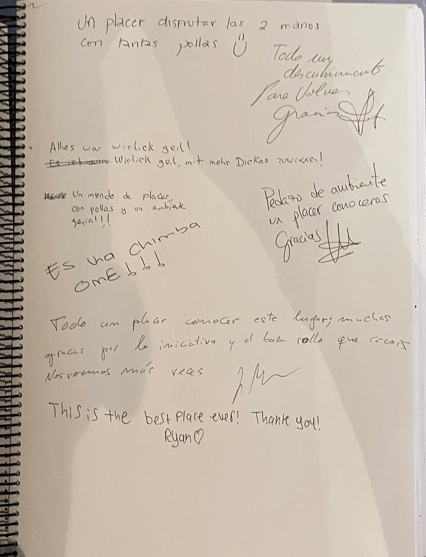 Un placer disfrutar las 2 manos
con tantas pollas
Todo un
descubrimiento.
Para Volver
Gracias
Alles war wirlick geil!
Wirlick geil, mit mehr Dickas zuwixen!
Un mundo de placer,
con pollas y un ambiente
genial!!!
Pedazo de ambiente
un placer conoceros
Gracias!
Es una chimba
OME!!!
Todo un placer conocer este lugar; muchas
gracias por la iniciativa y el buen rollo que creais
Nos veremos más veces
This is the best place ever! Thank you!
Ryan♡